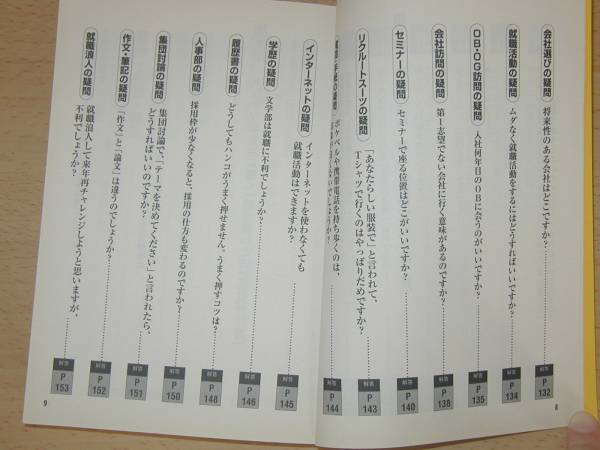 会社選びの疑問
将来性のある会社はどこですか?
解答
P
132
就職活動の疑問
ムダなく就職活動をするにはどうすればいいですか?
解答
P
134
OB・OG訪問の疑問
入社何年目のOBに会うのがいいですか?
解答
P
135
会社訪問の疑問
第1志望でない会社に行く意味があるのですか?
解答
P
138
セミナーの疑問
セミナーで座る位置はどこがいいですか?
解答
P
140
リクルートスーツの疑問
「あなたらしい服装で」と言われて、
Tシャツで行くのはやっぱりだめですか?
解答
P
143
の疑問
ポケベルや携帯電話を持ち歩くのは、
解答
P
144
8
インターネットの疑問
インターネットを使わなくても
就職活動はできますか?
解答
P
145
学歴の疑問
文学部は就職に不利でしょうか?
解答
P
146
履歴書の疑問
どうしてもハンコがうまく押せません。うまく押すコツは?
解答
P
148
人事部の疑問
採用枠が少なくなると、採用の仕方も変わるのですか?
解答
P
150
集団討論の疑問
集団討論で、「テーマを決めてください」と言われたら、
どうすればいいのですか?
解答
P
151
作文・筆記の疑問
「作文」と「論文」は違うのでしょうか?
解答
P
152
就職浪人の疑問
就職浪人して来年再チャレンジしようと思いますが、
不利でしょうか?
解答
P
153
9